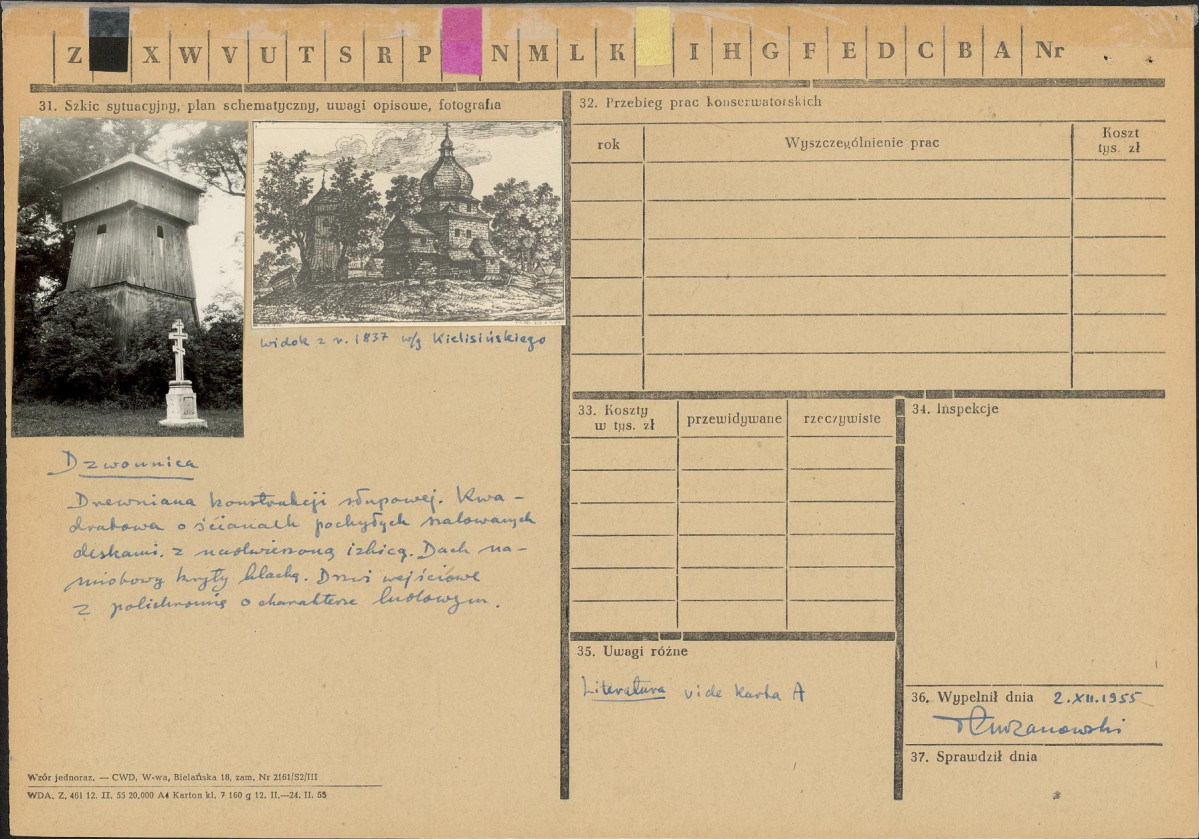 Z X W V U T S R P N M L K I H G F E D C B A Nr
31. Szkic sytuacyjny, plan schematyczny, uwagi opisowe, fotografia
widok z r. 1837 w/g Kielisińskiego
Dzwonnica
Drewniana konstrukcji słupowej. Kwa-
dratowa o ścianach pochyłych szalowanych
deskami. z nadwieszoną izbicą. Dach na-
miotowy kryty blachą. Drzwi wejściowe
z polichromią o charakterze ludowym.
Wzór jednoraz. — CWD, W-wa, Bielańska 18, zam. Nr 2161/S2/III
WDA. Z. 461 12. II. 55 20,000 A4 Karton kl. 7 160 g 12. II.—24. II. 55
32. Przebieg prac konserwatorskich
rok Wyszczególnienie prac Koszt
tys. zł
33. Koszty
w tys. zł
przewidywane
rzeczywiste
34. Inspekcje
35. Uwagi różne
Literatura vide karta A
36. Wypełnił dnia 2.XII.1955
37. Sprawdził dnia